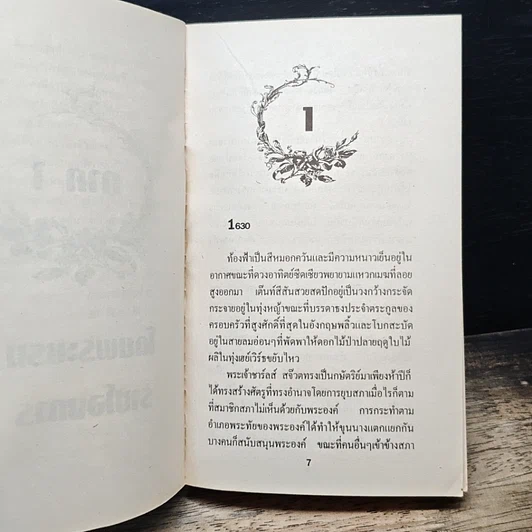 1
1630
ท้องฟ้าเป็นสีหมอกควันและมีความหนาวเย็นอยู่ใน
อากาศขณะที่ดวงอาทิตย์ซีดเซียวพยายามแหวกเมฆที่ลอย
สูงออกมา เต็นท์สีสันสวยสดปักอยู่เป็นวงกว้างกระจัด
กระจายอยู่ในทุ่งหญ้าขณะที่บรรดาธงประจำตระกูลของ
ครอบครัวที่สูงศักดิ์ที่สุดในอังกฤษพลิ้วและโบกสะบัด
อยู่ในสายลมอ่อนๆที่พัดพาให้ดอกไม้ป่าปลายฤดูใบไม้
ผลิในทุ่งเฮย์เวิร์ธขยับไหว
พระเจ้าชาร์ลส์ สจ๊วตทรงเป็นกษัตริย์มาเพียงห้าปีก็
ได้ทรงสร้างศัตรูที่ทรงอำนาจโดยการยุบสภาเมื่อไรก็ตาม
ที่สมาชิกสภาไม่เห็นด้วยกับพระองค์ การกระทำตาม
อำเภอพระทัยของพระองค์ได้ทำให้ขุนนางแตกแยกกัน
บางคนก็สนับสนุนพระองค์ ขณะที่คนอื่นๆเข้าข้างสภา
7